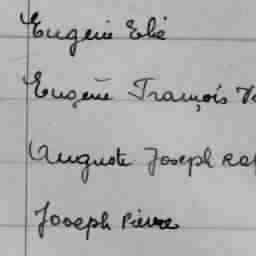 Eugène Elie
Eugène François
Auguste Joseph
Joseph Pierre